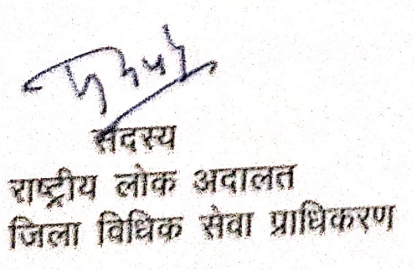 सदस्य
राष्ट्रीय लोक अदालत
जिला विधिक सेवा प्राधिकरण